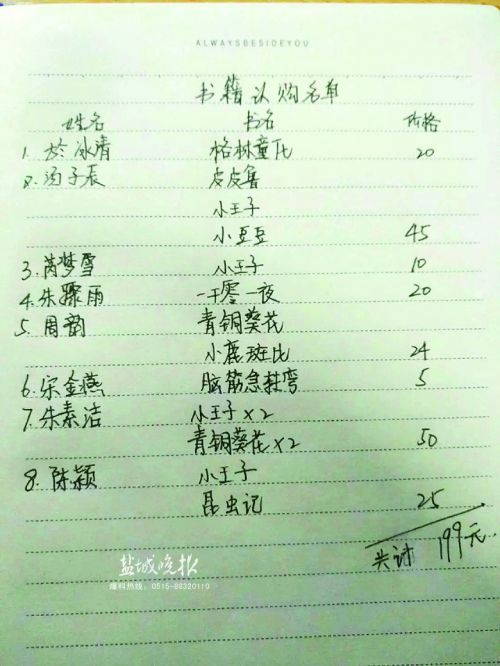 ALWAYSBESIDEYOU
书籍认购名单
姓名 书名 价格
1. 於冰清 格林童话 20
2. 汤子辰 皮皮鲁
小王子
小豆豆 45
3. 芮梦雪 小王子 10
4. 朱骤雨 一千零一夜 20
5. 周韵 青铜葵花
小鹿斑比 24
6. 宋金燕 脑筋急转弯 5
7. 朱素洁 小王子×2
青铜葵花×2 50
8. 陈颖 小王子
昆虫记 25
共计 199元
盐城晚报
爆料热线:0515-88320110